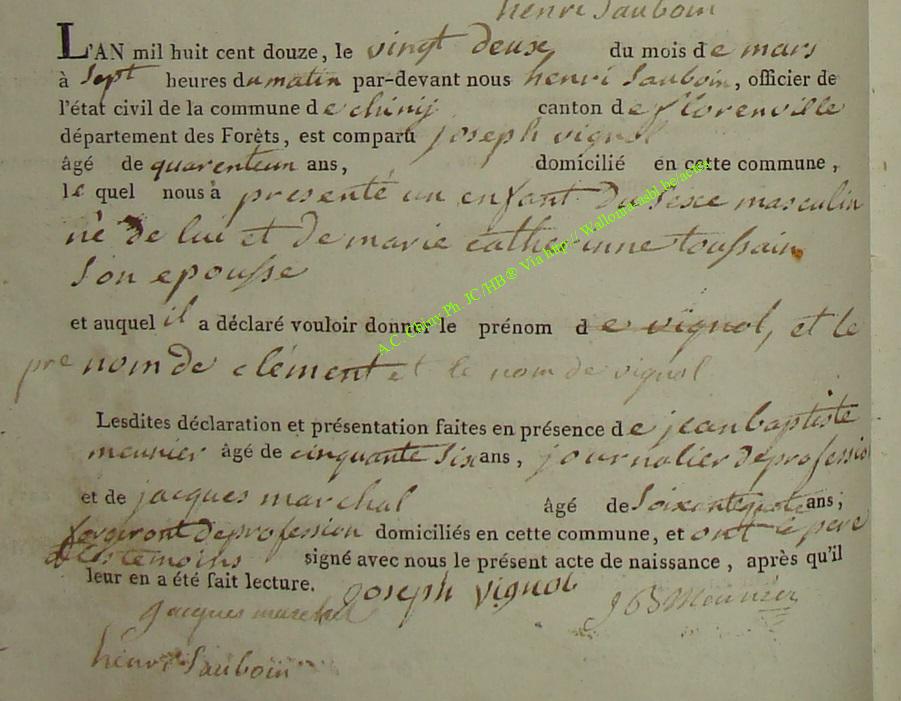 henri Sauboin
L'AN mil huit cent douze, le vingt deux du mois de mars
à Sept heures du matin par-devant nous henri Sauboin, officier de
l'état civil de la commune de chiny canton de florenville
département des Forêts, est comparu joseph vignol
âgé de quarenteun ans, domicilié en cette commune,
le quel nous a presenté un enfant du Sexe masculin
né de lui et de marie catherinne toussain
Son epousse
et auquel il a déclaré vouloir donner le prénom de vignol, et le
pre nom de clément et le nom de vignol
Lesdites déclaration et présentation faites en présence de jean baptiste
meunier âgé de cinquante Six ans, journalier de profession
et de jacques marchal âgé de Soixante quatre ans;
de profession domiciliés en cette commune, et ont le pere
et les temoins signé avec nous le présent acte de naissance, après qu'il
leur en a été fait lecture. Joseph vignol
jacques marchal J B Meunier
henri Sauboin
A.C. Chiny Ph. JC /HB® Via http:// Wallonia-asbl.be/actes